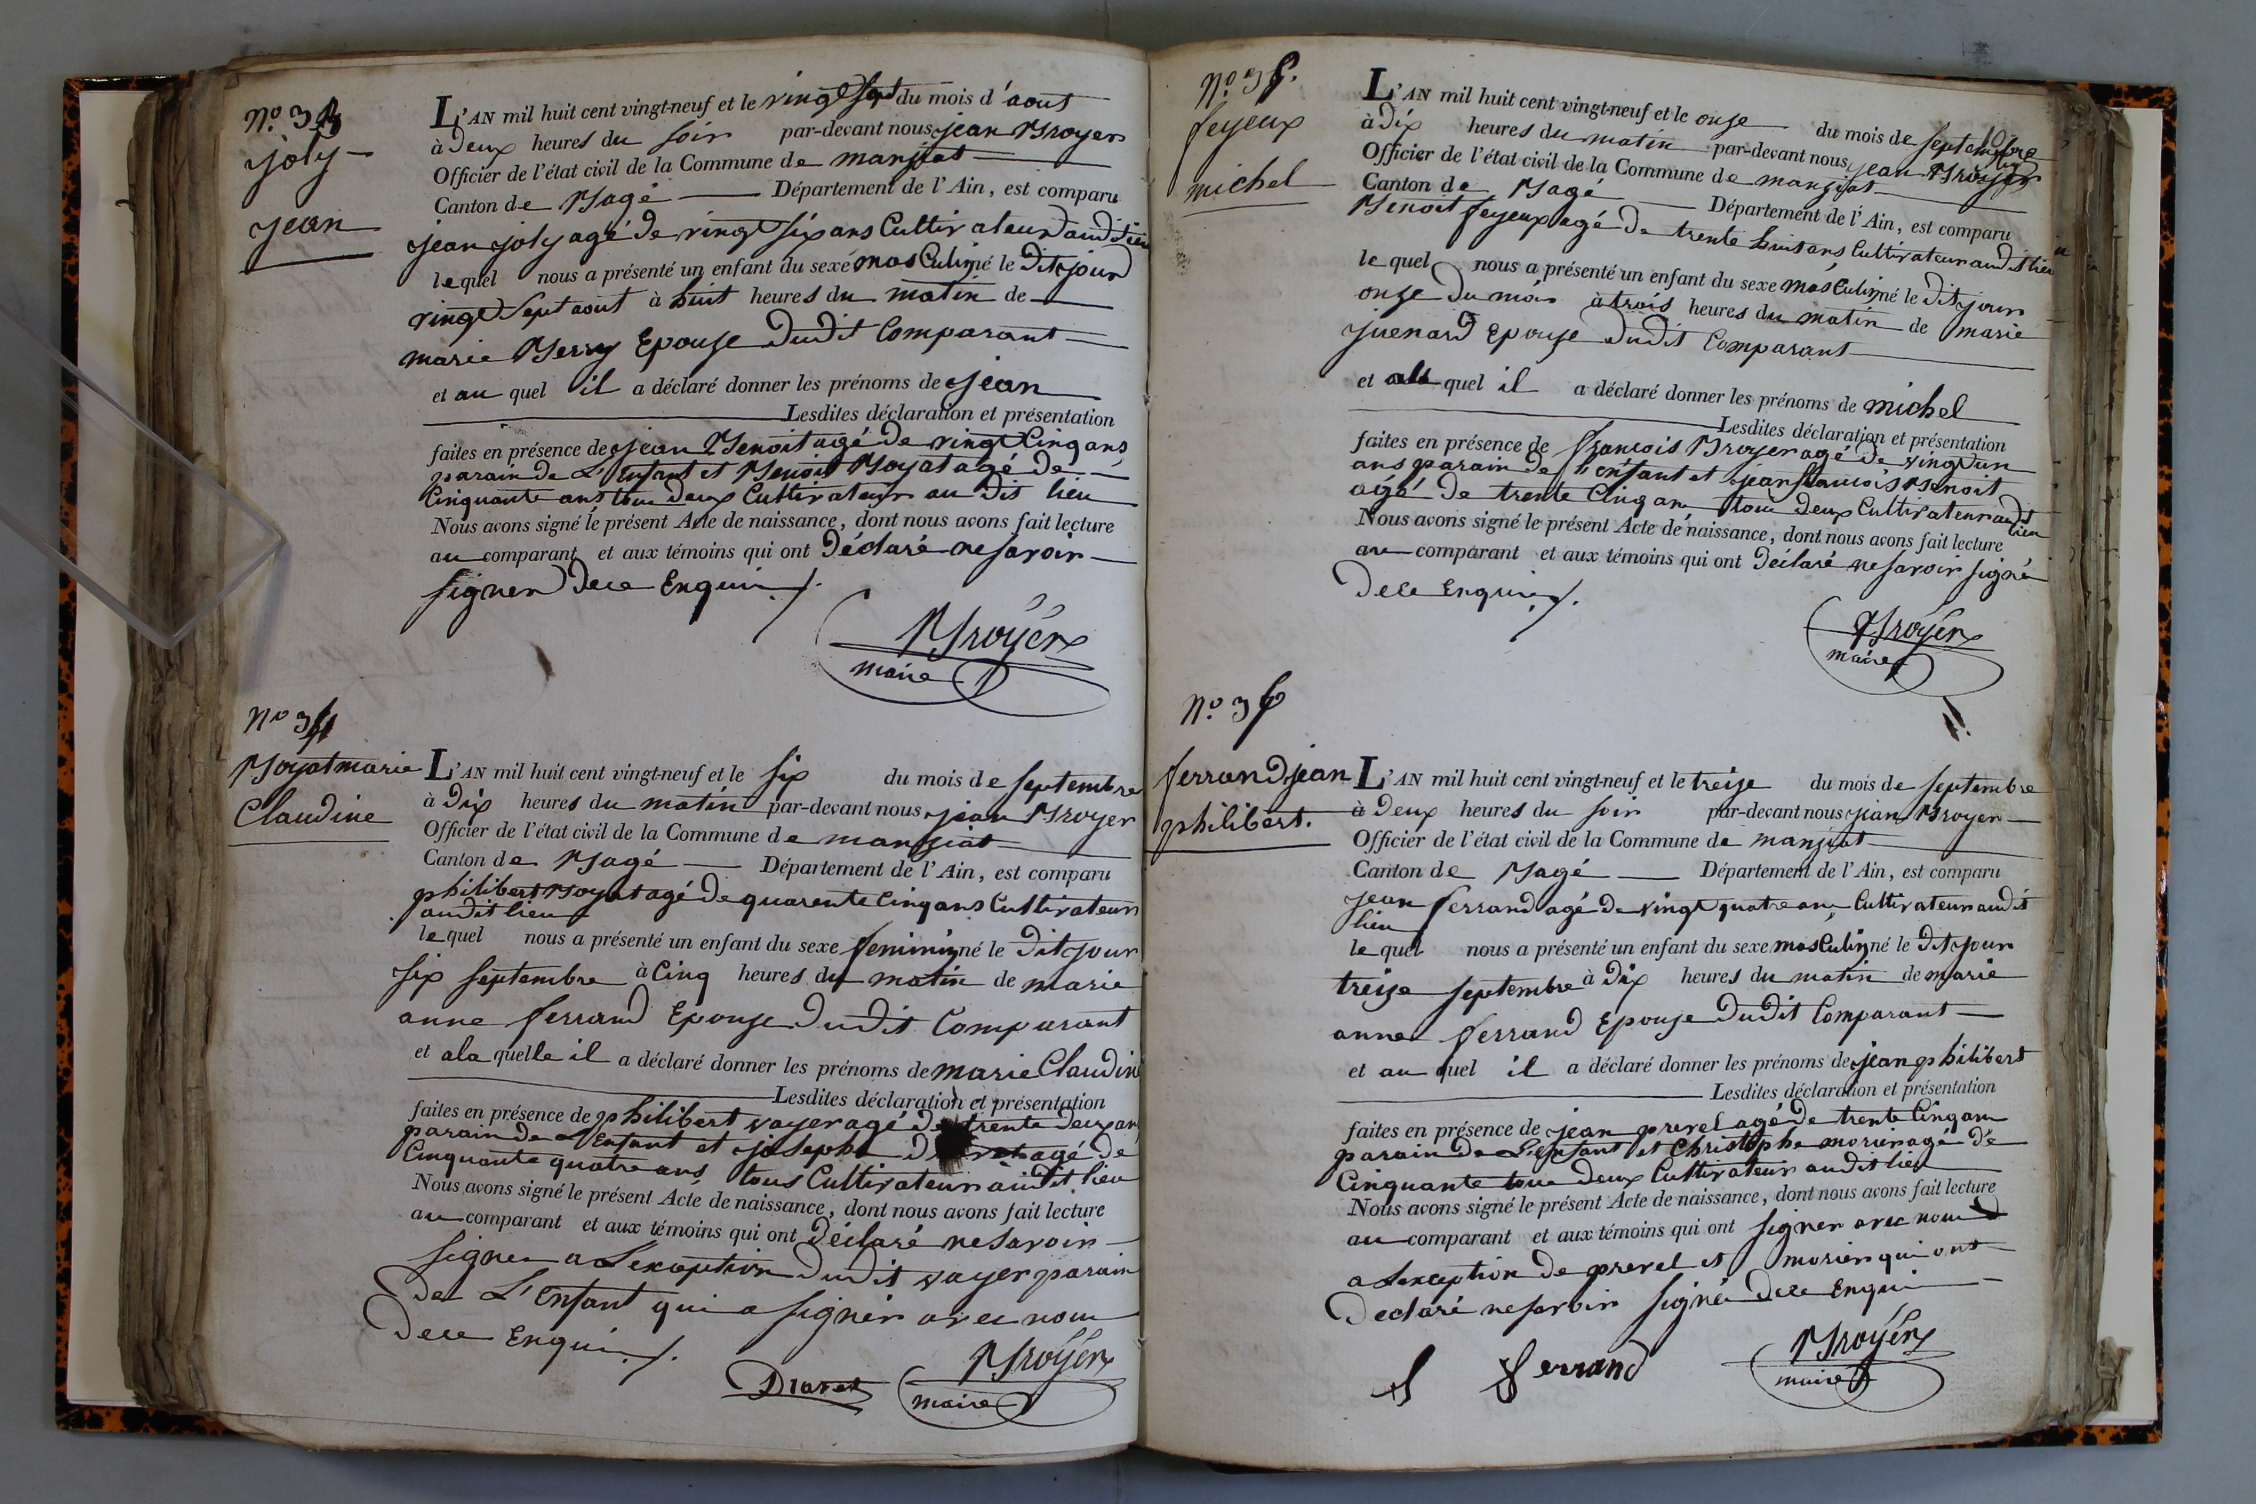 joly
jean
L'AN mil huit cent vingt-neuf et le vingt sept du mois d'aout
à deux heures du soir par-devant nous jean Broyer
Officier de l'état civil de la Commune de manziat
Canton de Bagé Département de l'Ain, est comparu
jean joly agé de vingt six ans Cultivateur audit lieu
le quel nous a présenté un enfant du sexe masculin né le dit jour
vingt sept aout à huit heures du matin de
marie Berry Epouse dudit Comparant
et au quel il a déclaré donner les prénoms de jean
Lesdites déclaration et présentation
faites en présence de jean Benoit agé de vingt Cinq ans
parain de L'Enfant et Benoit Boyat agé de
Cinquante ans tou deux Cultivateur au dit lieu
Nous avons signé le présent Acte de naissance, dont nous avons fait lecture
au comparant et aux témoins qui ont Déclaré ne savoir
signer de ce Enqui
Broyer
maire
Boyat marie
Claudine
L'AN mil huit cent vingt-neuf et le six du mois de septembre
à dix heures du matin par-devant nous jean Broyer
Officier de l'état civil de la Commune de manziat
Canton de Bagé Département de l'Ain, est comparu
philibert Boyat agé de quarente Cinq ans Cultivateur
audit lieu
le quel nous a présenté un enfant du sexe feminin né le dit jour
six septembre à Cinq heures du matin de marie
anne ferrand Epouse dudit Comparant
et a la quelle il a déclaré donner les prénoms de marie Claudine
Lesdites déclaration et présentation
faites en présence de philibert voyer agé de trente deux ans
parain de L'Enfant et josephe agé de
Cinquante quatre ans tous Cultivateur audit lieu
Nous avons signé le présent Acte de naissance, dont nous avons fait lecture
au comparant et aux témoins qui ont Déclaré ne savoir
signer a L'exception dudit voyer parain
de L'Enfant qui a signer avec nous
de ce Enqui
Broyer
maire
feyeux
michel
L'AN mil huit cent vingt-neuf et le onze du mois de septembre
à dix heures du matin par-devant nous jean Broyer
Officier de l'état civil de la Commune de manziat
Canton de Bagé Département de l'Ain, est comparu
Benoit feyeux agé de trente huit ans Cultivateur audit lieu
le quel nous a présenté un enfant du sexe masculin né le dit jour
onze du mois à trois heures du matin de marie
juenard Epouse dudit Comparant
et au quel il a déclaré donner les prénoms de michel
Lesdites déclaration et présentation
faites en présence de françois Broyer agé de vingt un
ans parain de l'enfant et jean francois Benoit
agé de trente Cinq ans tou deux Cultivateur audit
lieu
Nous avons signé le présent Acte de naissance, dont nous avons fait lecture
au comparant et aux témoins qui ont Déclaré ne savoir signé
de ce Enqui
Broyer
maire
ferrand jean
philibert.
L'AN mil huit cent vingt-neuf et le treize du mois de septembre
à deux heures du soir par-devant nous jean Broyer
Officier de l'état civil de la Commune de manziat
Canton de Bagé Département de l'Ain, est comparu
jean ferrand agé de vingt quatre ans Cultivateur audit
lieu
le quel nous a présenté un enfant du sexe masculin né le dit jour
treize septembre à dix heures du matin de marie
anne ferrand Epouse dudit Comparant
et au quel il a déclaré donner les prénoms de jean philibert
Lesdites déclaration et présentation
faites en présence de jean prevel agé de trente Cinq ans
parain de L'enfant et Christophe morier agé de
Cinquante tou deux Cultivateur audit lieu
Nous avons signé le présent Acte de naissance, dont nous avons fait lecture
au comparant et aux témoins qui ont signer avec nous
a Lexception de prevel et morier qui ont
Declaré ne savoir signé de ce Enqui
ferrand
Broyer
maire